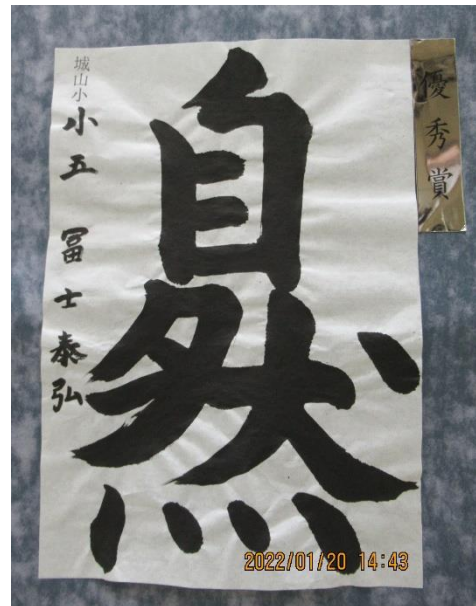 優秀賞
自然
城山小
小五 冨士泰弘
2022/01/20 14:43